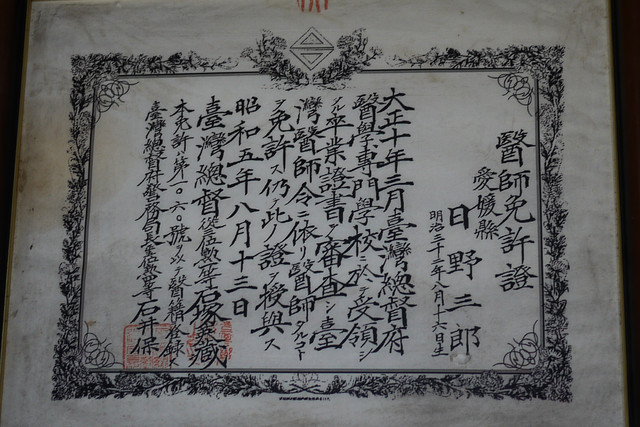 醫師免許證
愛媛縣
日野三郎
明治三十三年八月十六日生
大正十年三月臺灣總督府
醫學專門學校ニ於テ受領シ
タル卒業證書ヲ審査シ臺
灣醫師令ニ依リ醫師タルコト
ヲ免許ス仍テ此ノ證ヲ授與ス
昭和五年八月十三日
臺灣總督從三位勳一等石塚英藏
本免許ハ第一〇六〇號ヲ以テ醫籍ニ登錄ス
臺灣總督府警務局長 勳 等石井保